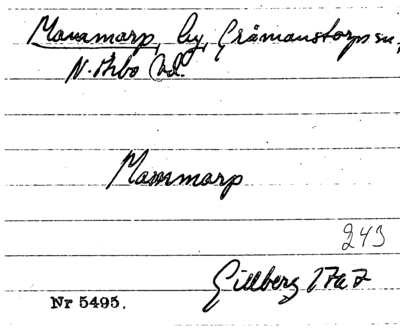 Mammarp, by, Gråmanstorps sn,
N. Åsbo hd.
Mammarp
243
Gillberg 1767
Nr 5495.